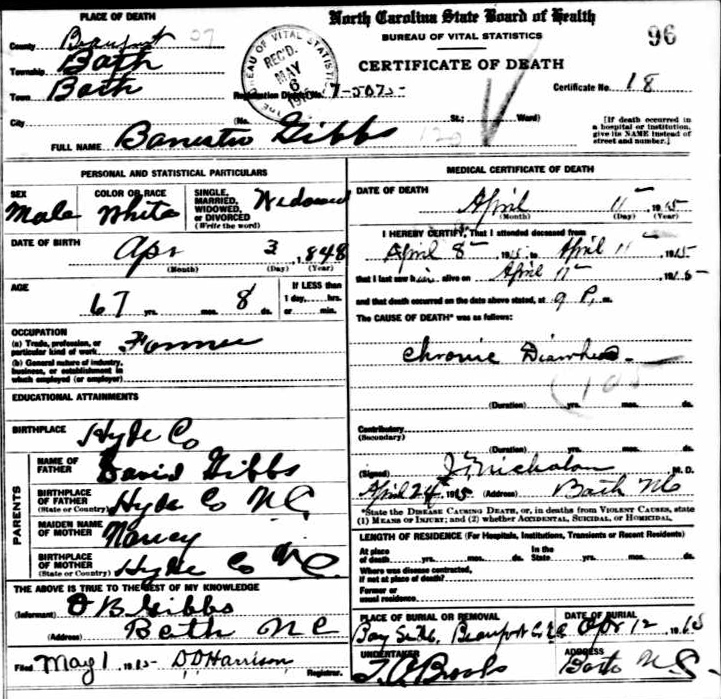 North Carolina State Board of Health
BUREAU OF VITAL STATISTICS
CERTIFICATE OF DEATH
96
PLACE OF DEATH
County Beaufort
Township Bath
Town Bath
City
BUREAU OF VITAL STATISTICS
REC'D.
MAY
6
Registration District No. 7-5075- Certificate No. 18
(No. St.; Ward)
[If death occurred in a hospital or institution, give its NAME instead of street and number.]
FULL NAME Banester Gibbs
PERSONAL AND STATISTICAL PARTICULARS
SEX
Male
COLOR OR RACE
White
SINGLE, MARRIED, WIDOWED, or DIVORCED
(Write the word)
Widowed
DATE OF BIRTH
Apr 3, 1848
(Month) (Day) (Year)
AGE
67 yrs. mos. 8 ds.
If LESS than
1 day,....hrs.
or....min.
OCCUPATION
(a) Trade, profession, or
particular kind of work Farmer
(b) General nature of industry,
business, or establishment in
which employed (or employer)
EDUCATIONAL ATTAINMENTS
BIRTHPLACE Hyde Co
PARENTS
NAME OF FATHER David Gibbs
BIRTHPLACE OF FATHER
(State or Country) Hyde Co NC
MAIDEN NAME OF MOTHER Nancy
BIRTHPLACE OF MOTHER
(State or Country) Hyde Co NC
THE ABOVE IS TRUE TO THE BEST OF MY KNOWLEDGE
(Informant) O B Gibbs
(Address) Bath NC
Filed May 1 1915 D D Harrison
Registrar.
MEDICAL CERTIFICATE OF DEATH
DATE OF DEATH
April 11 1915
(Month) (Day) (Year)
I HEREBY CERTIFY, That I attended deceased from
April 8 1915 to April 11 1915
that I last saw him alive on April 11 1915
and that death occurred on the date above stated, at 9 P. m.
The CAUSE OF DEATH* was as follows:
Chronic Diarrhea
105
(Duration) yrs. mos. ds.
Contributory
(Secondary)
(Duration) yrs. mos. ds.
(Signed) Nicholson M. D.
April 24 1915 (Address) Bath NC
*State the DISEASE CAUSING DEATH, or, in deaths from VIOLENT CAUSES, state
(1) MEANS OF INJURY; and (2) whether ACCIDENTAL, SUICIDAL, or HOMICIDAL.
LENGTH OF RESIDENCE (For Hospitals, Institutions, Transients or Recent Residents)
At place
of death yrs. mos. ds.
In the
State yrs. mos. ds.
Where was disease contracted,
if not at place of death?
Former or
usual residence
PLACE OF BURIAL OR REMOVAL
Bay Side, Beaufort Co NC
DATE OF BURIAL
Apr 12 1915
UNDERTAKER
T. A. Brooks
ADDRESS
Bath N C